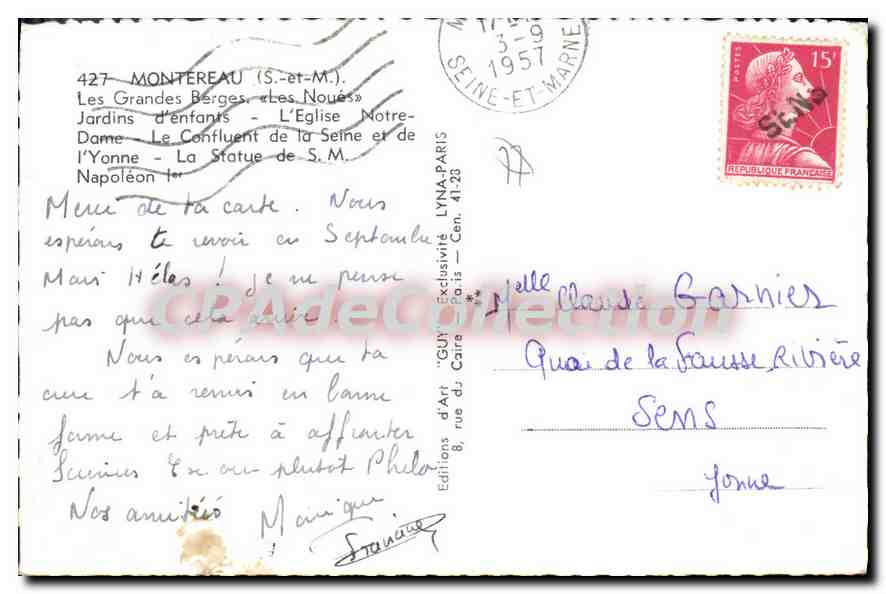 427 MONTEREAU (S.-et-M.).
Les Grandes Berges. «Les Noues»
Jardins d'enfants - L'Eglise Notre-
Dame - Le Confluent de la Seine et de
l'Yonne - La Statue de S. M.
Napoléon Ier
Merci de ta carte. Nous
espérons te revoir en Septembre
Mais Hélas ! je ne pense
pas que cela arrive.
Nous espérons que ta
cure t'a remis en bonne
forme et prête à affronter
Sciences Ex ou plutôt Philo
Nos amitiés Monique
Francine
Editions d'Art "GUY" - Exclusivité LYNA-PARIS
8, rue du Caire - Paris - Cen. 41-28
17
3-9
1957
SEINE-ET-MARNE
POSTES
15F
SENS
REPUBLIQUE FRANÇAISE
Melle Claude Garnier
Quai de la Fausse Rivière
SENS
Yonne
CPAdeCollection